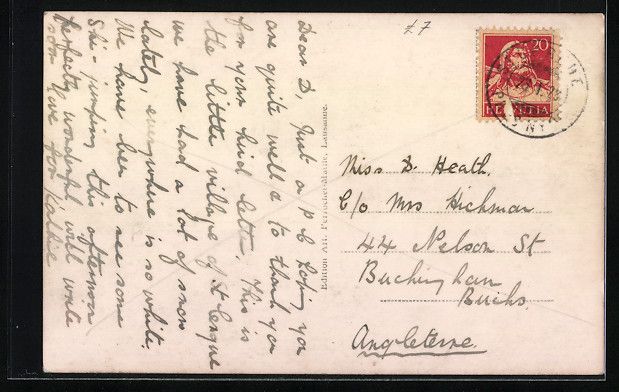 Dear D, Just a p c hoping you
are quite well & to thank you
for your kind letter. This is
the little village of St Cergue
we have had a lot of snow
lately, everywhere is so white.
We have been to see some
Ski-jumping this afternoon
perfectly wonderful, will write
soon love from Kathie
Edition Art. Perrochet-Matile, Lausanne.
£7
20
HELVETIA
Miss D Heath.
C/o Mrs Hickman
44 Nelson St
Buckingham
Bucks.
Angleterre